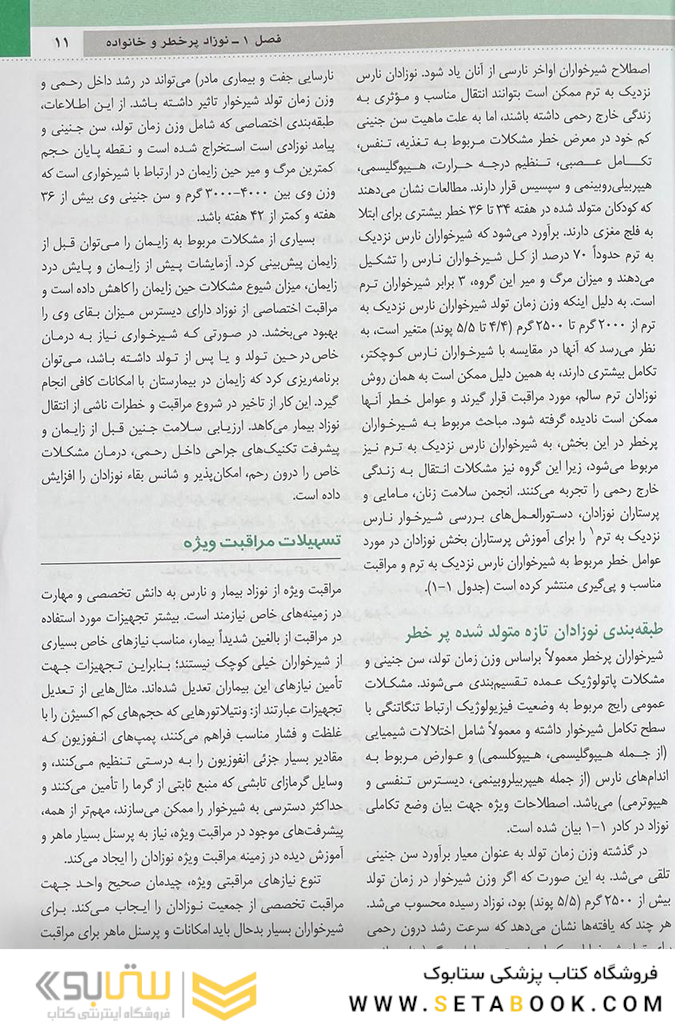 ۱۱
فصل ۱ ـ نوزاد پرخطر و خانواده
اصطلاح شیرخواران اواخر نارسی از آنان یاد شود. نوزادان نارس
نزدیک به ترم ممکن است بتوانند انتقال مناسب و مؤثری به
زندگی خارج رحمی داشته باشند، اما به علت ماهیت سن جنینی
کم خود در معرض خطر مشکلات مربوط به تغذیه، تنفس،
تکامل عصبی، تنظیم درجه حرارت، هیپوگلیسمی،
هیپربیلی‌روبینمی و سپسیس قرار دارند. مطالعات نشان می‌دهند
که کودکان متولد شده در هفته ۳۴ تا ۳۶ خطر بیشتری برای ابتلا
به فلج مغزی دارند. برآورد می‌شود که شیرخواران نارس نزدیک
به ترم حدوداً ۷۰ درصد از کل شیرخواران نارس را تشکیل
می‌دهند و میزان مرگ و میر این گروه، ۳ برابر شیرخواران ترم
است. به دلیل اینکه وزن زمان تولد شیرخواران نارس نزدیک به
ترم از ۲۰۰۰ گرم تا ۲۵۰۰ گرم (۴/۴ تا ۵/۵ پوند) متغیر است، به
نظر می‌رسد که آنها در مقایسه با شیرخواران نارس کوچکتر،
تکامل بیشتری دارند، به همین دلیل ممکن است به همان روش
نوزادان ترم سالم، مورد مراقبت قرار گیرند و عوامل خطر آنها
ممکن است نادیده گرفته شود. مباحث مربوط به شیرخواران
پرخطر در این بخش، به شیرخواران نارس نزدیک به ترم نیز
مربوط می‌شود، زیرا این گروه نیز مشکلات انتقال به زندگی
خارج رحمی را تجربه می‌کنند. انجمن سلامت زنان، مامایی و
پرستاران نوزادان، دستورالعمل‌های بررسی شیرخوار نارس
نزدیک به ترم۱ را برای آموزش پرستاران بخش نوزادان در مورد
عوامل خطر مربوط به شیرخواران نارس نزدیک به ترم و مراقبت
مناسب و پی‌گیری منتشر کرده است (جدول ۱-۱).
طبقه‌بندی نوزادان تازه متولد شده پر خطر
شیرخواران پرخطر معمولاً براساس وزن زمان تولد، سن جنینی و
مشکلات پاتولوژیک عمده تقسیم‌بندی می‌شوند. مشکلات
عمومی رایج مربوط به وضعیت فیزیولوژیک ارتباط تنگاتنگی با
سطح تکامل شیرخوار داشته و معمولاً شامل اختلالات شیمیایی
(از جمله هیپوگلیسمی، هیپوکلسمی) و عوارض مربوط به
اندام‌های نارس (از جمله هیپربیلروبینمی، دیسترس تنفسی و
هیپوترمی) می‌باشد. اصطلاحات ویژه جهت بیان وضع تکاملی
نوزاد در کادر ۱-۱ بیان شده است.
در گذشته وزن زمان تولد به عنوان معیار برآورد سن جنینی
تلقی می‌شد. به این صورت که اگر وزن شیرخوار در زمان تولد
بیش از ۲۵۰۰ گرم (۵/۵ پوند) بود، نوزاد رسیده محسوب می‌شد.
هر چند که یافته‌ها نشان می‌دهد که سرعت رشد درون رحمی
نارسایی جفت و بیماری مادر) می‌تواند در رشد داخل رحمی و
وزن زمان تولد شیرخوار تاثیر داشته باشد. از این اطلاعات،
طبقه‌بندی اختصاصی که شامل وزن زمان تولد، سن جنینی و
پیامد نوزادی است استخراج شده است و نقطه پایان حجم
کمترین مرگ و میر حین زایمان در ارتباط با شیرخواری است که
وزن وی بین ۴۰۰۰-۳۰۰۰ گرم و سن جنینی وی بیش از ۳۶
هفته و کمتر از ۴۲ هفته باشد.
بسیاری از مشکلات مربوط به زایمان را می‌توان قبل از
زایمان پیش‌بینی کرد. آزمایشات پیش از زایمان و پایش درد
زایمان، میزان شیوع مشکلات حین زایمان را کاهش داده است و
مراقبت اختصاصی از نوزاد دارای دیسترس میزان بقای وی را
بهبود می‌بخشد. در صورتی که شیرخواری نیاز به درمان
خاص در حین تولد و یا پس از تولد داشته باشد، می‌توان
برنامه‌ریزی کرد که زایمان در بیمارستان با امکانات کافی انجام
گیرد. این کار از تاخیر در شروع مراقبت و خطرات ناشی از انتقال
نوزاد بیمار می‌کاهد. ارزیابی سلامت جنین قبل از زایمان و
پیشرفت تکنیک‌های جراحی داخل رحمی، درمان مشکلات
خاص را درون رحم، امکان‌پذیر و شانس بقاء نوزادان را افزایش
داده است.
تسهیلات مراقبت ویژه
مراقبت ویژه از نوزاد بیمار و نارس به دانش تخصصی و مهارت
در زمینه‌های خاص نیازمند است. بیشتر تجهیزات مورد استفاده
در مراقبت از بالغین شدیداً بیمار، مناسب نیازهای خاص بسیاری
از شیرخواران خیلی کوچک نیستند؛ بنابراین تجهیزات جهت
تأمین نیازهای این بیماران تعدیل شده‌اند. مثال‌هایی از تعدیل
تجهیزات عبارتند از: ونتیلاتورهایی که حجم‌های کم اکسیژن را با
غلظت و فشار مناسب فراهم می‌کنند، پمپ‌های انفوزیون که
مقادیر بسیار جزئی انفوزیون را به درستی تنظیم می‌کنند، و
وسایل گرمازای تابشی که منبع ثابتی از گرما را تأمین می‌کنند و
حداکثر دسترسی به شیرخوار را ممکن می‌سازند، مهم‌تر از همه،
پیشرفت‌های موجود در مراقبت ویژه، نیاز به پرسنل بسیار ماهر و
آموزش دیده در زمینه مراقبت ویژه نوزادان را ایجاد می‌کند.
تنوع نیازهای مراقبتی ویژه، چیدمان صحیح واحد جهت
مراقبت تخصصی از جمعیت نوزادان را ایجاب می‌کند. برای
شیرخواران بسیار بدحال باید امکانات و پرسنل ماهر برای مراقبت
فروشگاه کتاب پزشکی ستابوک
WWW.SETABOOK.COM
ستابوک
فروشگاه اینترنتی کتاب